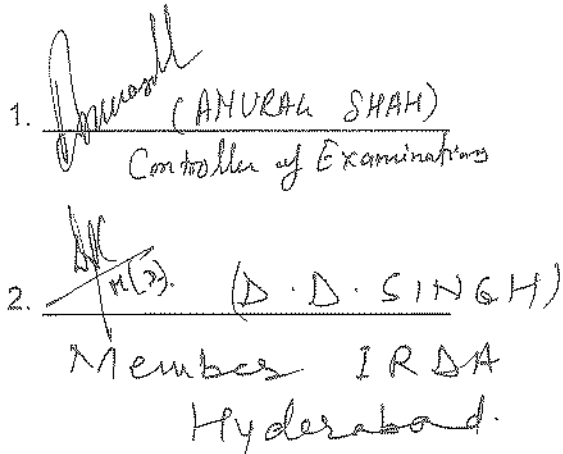 1. (ANURAG SHAH)
Controller of Examinations
2. (D.D. SINGH)
Member IRDA
Hyderabad.